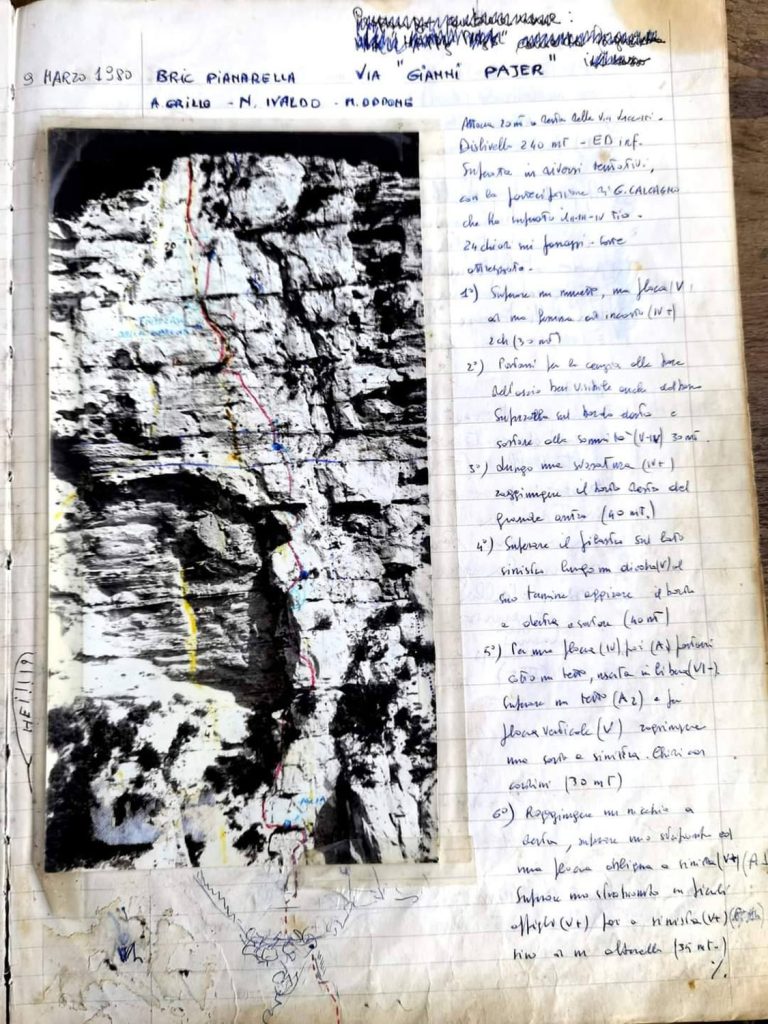 9 MARZO 1980 BRIC PIANARELLA VIA "GIANNI PAJER"
A. GRILLO - N. IVALDO - M. ODDONE
Attacca 20 mt a destra della via
Dislivello 240 mt - ED inf.
Superata in diversi tentativi,
con la partecipazione di G. CALCAGNO
che ha superato tiro.
24 chiodi nei passaggi - corte
attrezzata.
1°) Superare un muretto, una placca (V)
ed una fessura ad incastro (IV+)
2 ch (30 mt)
2°) Portarsi per la cengia alla base
ben visibile anche dal basso
Superarla sul bordo destro e
sostare alla sommità (V-IV) 30 mt.
3°) Lungo una (IV+)
raggiungere il bordo destro del
grande antro (40 mt.)
4°) Superare il pilastro sul lato
sinistro lungo un diedro (V) al
suo termine aggirare il bordo
a destra e sostare (40 mt)
5°) Per una placca (IV) poi (A1) portarsi
sotto un tetto, uscita in libera (VI-)
Superare un tetto (A2) e per
placca verticale (V) raggiungere
una sosta a sinistra. Chiodi con
cordini (30 mt)
6°) Raggiungere un nicchio a
destra, superare uno strapiombo ed
una placca obliqua a sinistra (V+) (A1
Superare uno strapiombo
appigli (V+) poi a sinistra (V+)
fino ad un alberello (35 mt.)
%.
HEI!!!(9)